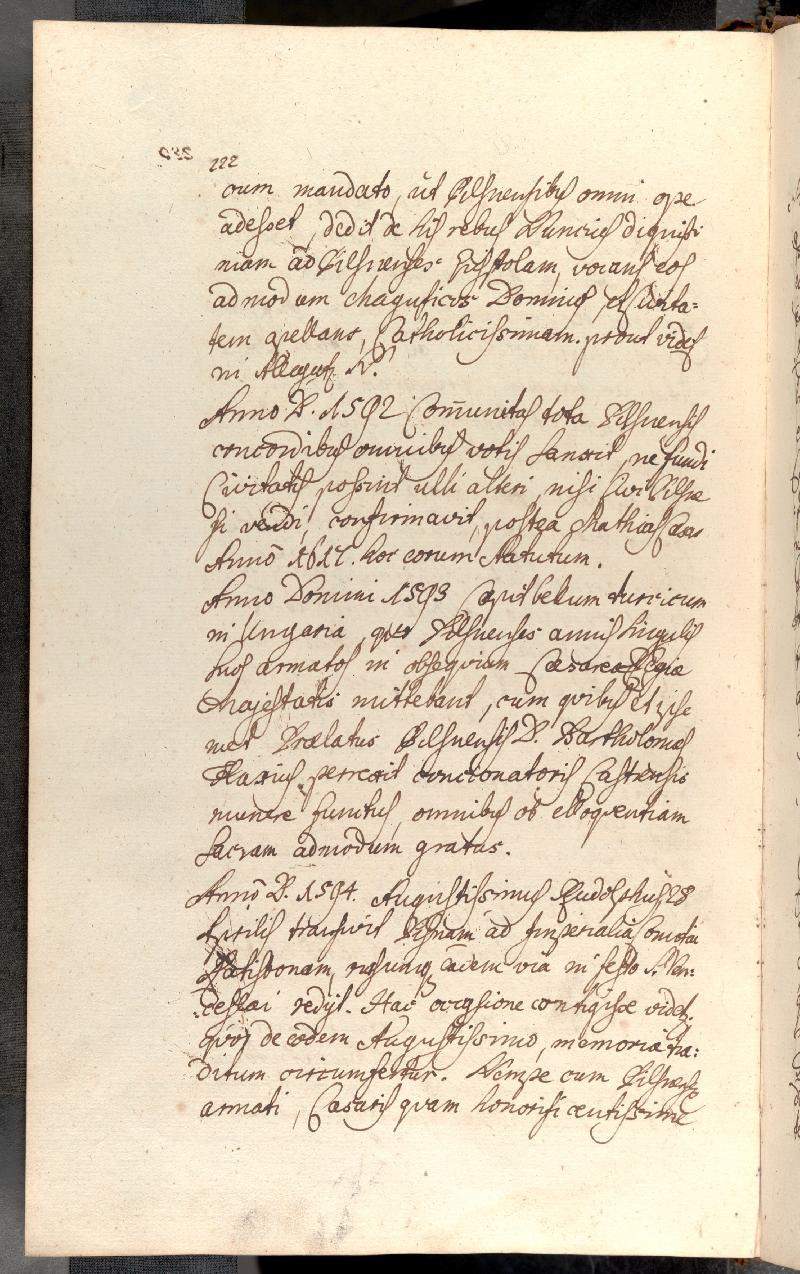 222
cum mandato, ut Pilsnensibus omni ope
adesset, dedit de his rebus Nuncius dignissi
mam ad Pilsnenses Epistolam, vocans eos
admodum Magnificos Dominos, et Civita=
tem apellans, Catholicissimam. prout videss
in Allegat. N.
Anno D. 1592 Com̄unitas tota Pilsnensis
concordibus omnibus votis sancit, ne fundi
Civitatis possint ulli alteri, nisi Civi Pilsne
si vendi, confirmavit, postea Mathias Caes
Anno 1617. hoc eorum Statutum.
Anno Domini 1593 Cepit bellum turcicum
in Ungaria, quo Pilsnenses annis singulis
suos armatos in obsequium Caesareae Regiae
Majestatis mittebant, cum quibus et ipse
met Praelatus Pilsnensis D. Bartholomaeus
Flaxius perrexit concionatoris Castrensis
munere functus, omnibus ob elloquentiam
Sacram admodum gratus.
Anno D. 1594. Augustissimus Rudolphus 28
Aprilis transivit Pilsnam ad Imperialia Comitia
Ratisbonam, rursumq eadem via in festo S. Wen:
:ceslai redijt. Hac occasione contigisse videt.
quod de eodem Augustissimo, memoriae tra:
ditum circumfertur. Nempe cum Pilsnenses
armati, Caesaris quam honorificentissime